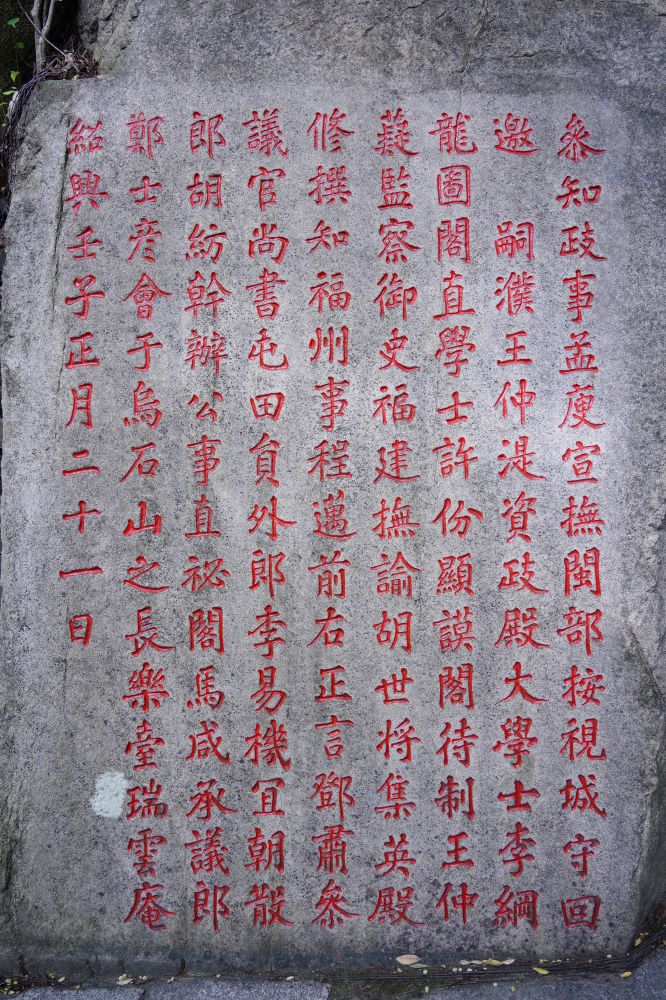 叅知政事孟庾宣撫閩部按視城守回
邀 嗣濮王仲湜資政殿大學士李綱
龍圖閣直學士許份顯謨閣待制王仲
薿監察御史福建撫諭胡世将集英殿
修撰知福州事程邁前右正言鄧肅叅
議官尚書屯田貟外郎李易機冝朝散
郎胡紡幹辦公事直祕閣馬咸承議郎
鄭士彦會于烏石山之長樂臺瑞雲庵
紹興壬子正月二十一日